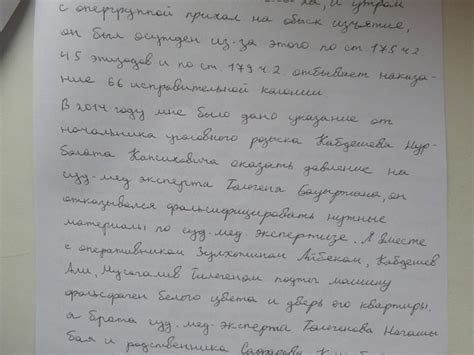 ха, и утром
с опергруппой приехал на обыск изъятие,
он был осужден из-за этого по ст. 175 ч 2
45 эпизодов и по ст. 179 ч. 2. отбывает наказа-
ние 66 исправительной колонии
В 2014 году мне было дано указание от
начальника уголовного розыска Кабдешева Нур-
болата Капсиховича оказать давление на
суд. мед эксперта Толегена Бауыржана, он
отказывался фальсифицировать нужные
материалы по суд. мед. экспертизе. Я вместе
с оперативником Зулхажиным Айбеком, Кабдешев
Али, Мусагалив Тилегеном поджог машину
фольсфаген белого цвета и дверь его квартиры,
а брата суд. мед. эксперта Толегенова Нагашы
бая и родственника